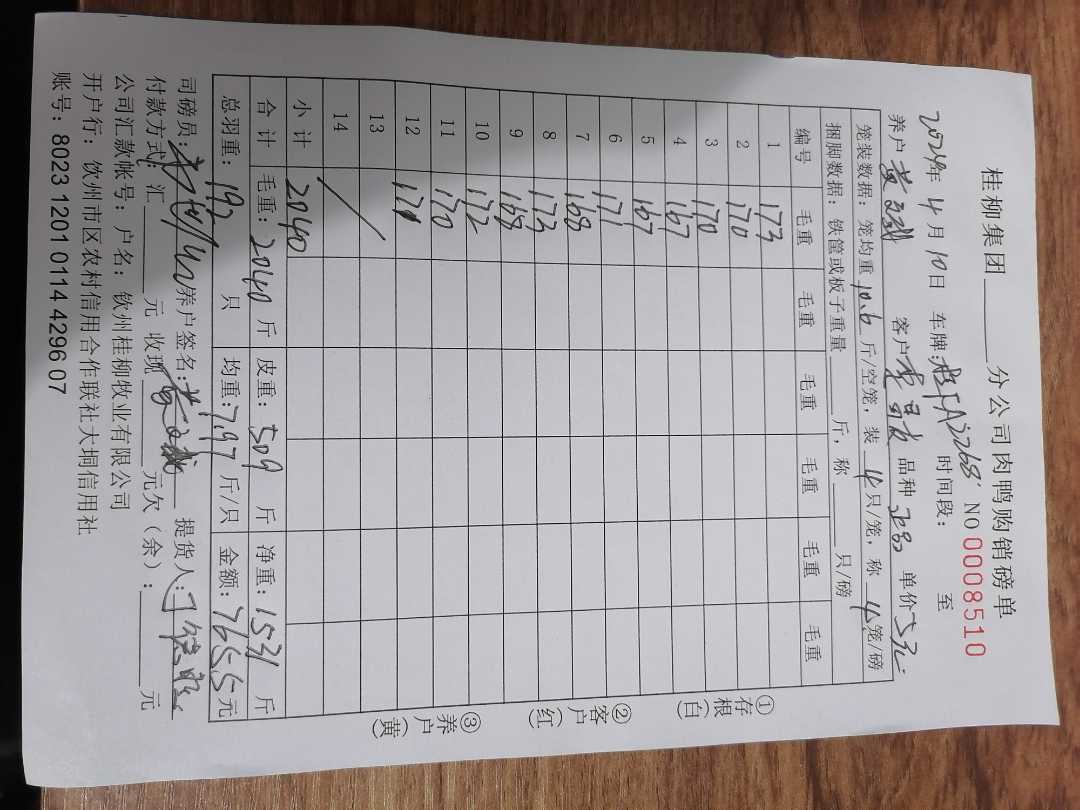 桂柳集团 分公司肉鸭购销磅单
2024年 4月10日 车牌: 桂FA3268 时间段: 至 NO 0008510
养户 客户 品种 正品 单价 5元
笼装数据: 笼均重 10.6 斤/空笼, 装 4 只/笼, 称 4 笼/磅
捆脚数据: 铁筐或板子重量 斤, 称 只/磅
编号 毛重 毛重 毛重 毛重 毛重 毛重
1 173
2 170
3 170
4 167
5 167
6 171
7 168
8 173
9 168
10 172
11 170
12 171
13
14
小计 2040
合计 毛重: 2040 斤 皮重: 509 斤 净重: 1531 斤
总羽重: 192 只 均重: 7.97 斤/只 金额: 7655 元
司磅员: 养户签名: 提货人:
付款方式: 汇 元 收现 元欠(余): 元
公司汇款帐号: 户名: 钦州桂柳牧业有限公司
开户行: 钦州市区农村信用合作联社大垌信用社
账号: 8023 1201 0114 4296 07
①存根(白)
②客户(红)
③养户(黄)